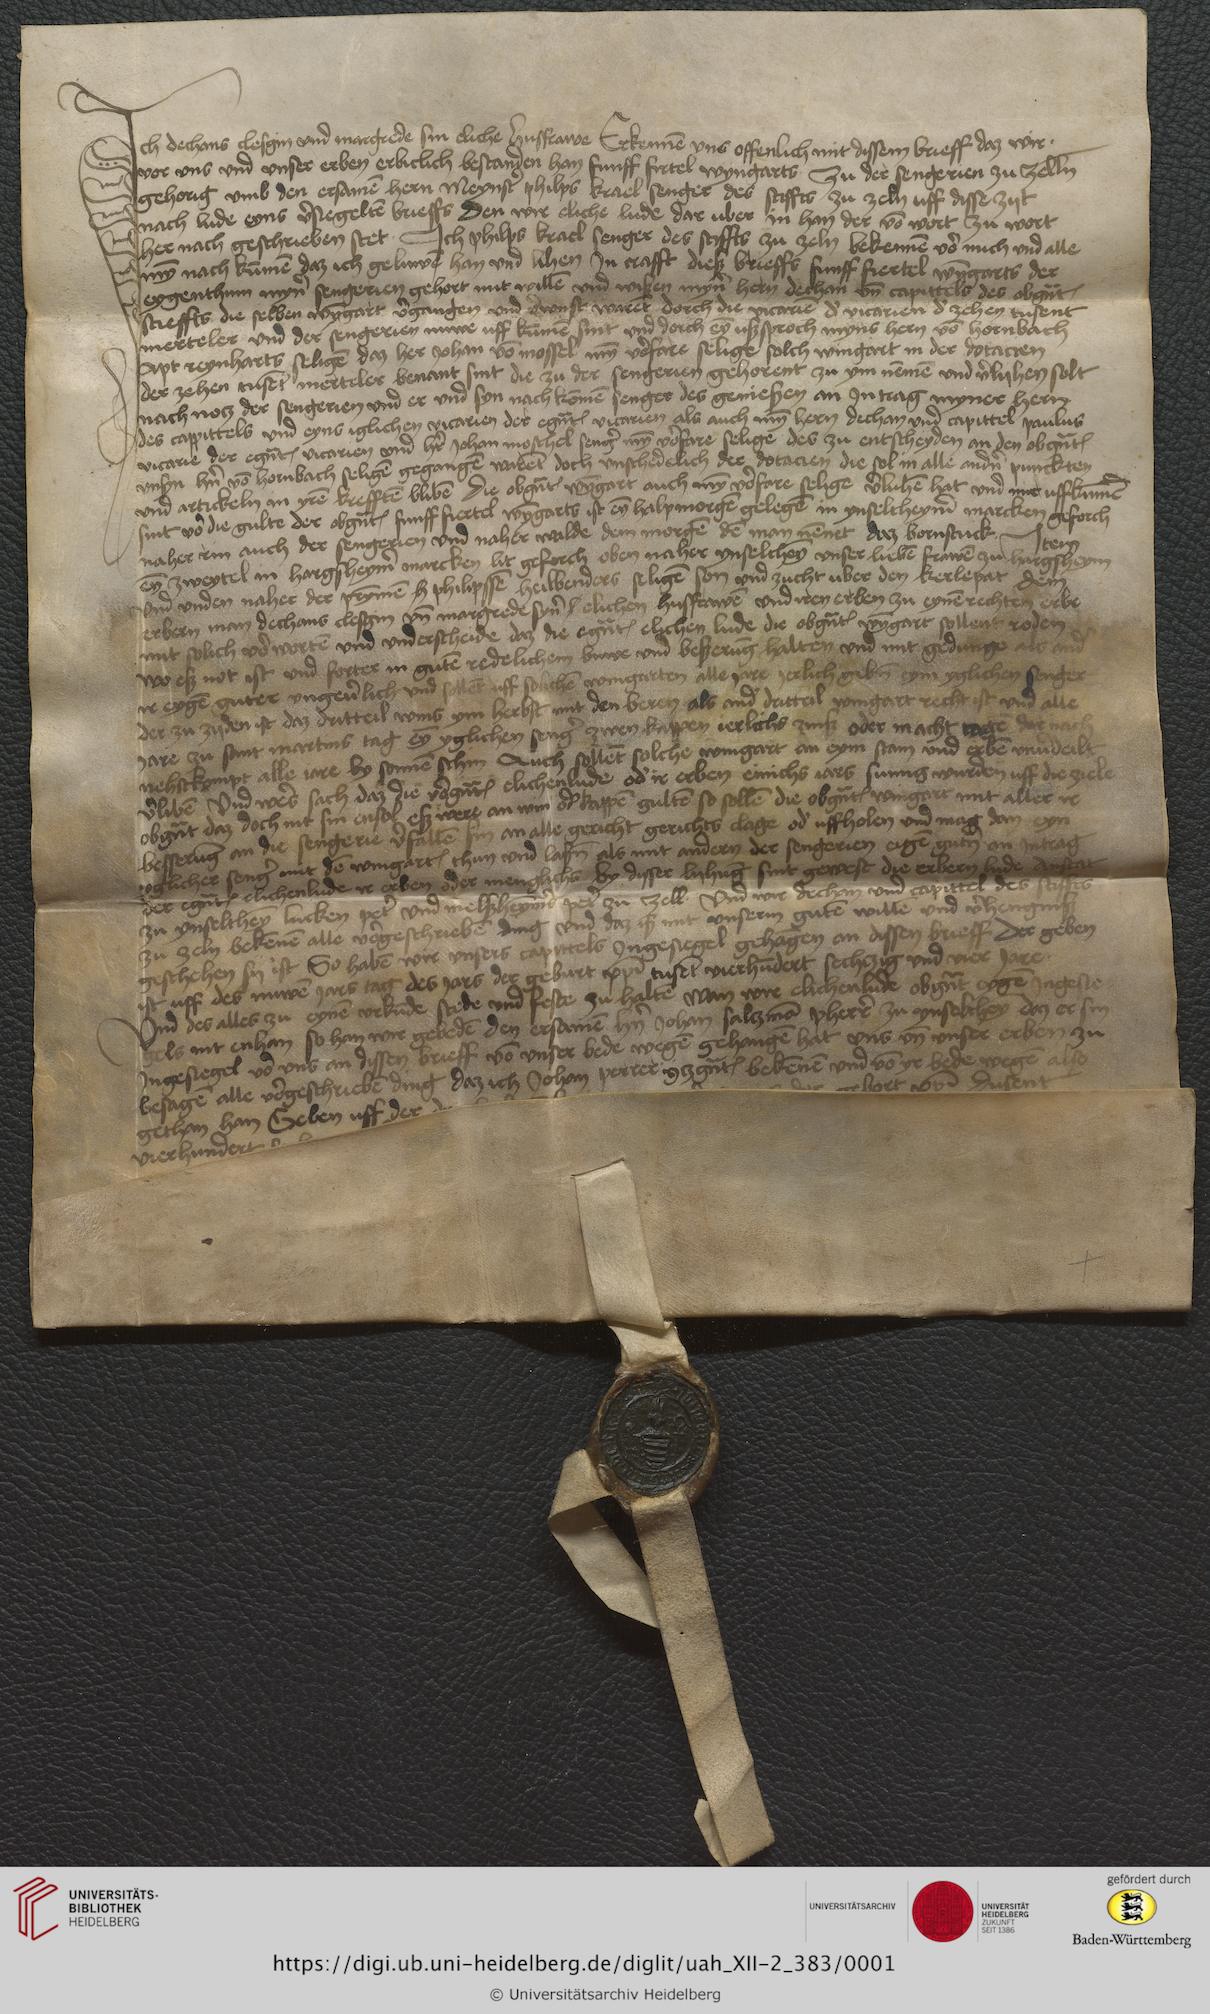 Ich dechans clesgin vnd margrede sin eliche Husfrawe Erkennē vns offenlich mit dissem brieff daz wir
vor vns vnd vnser erben erbiclich bestanden han funff firtel wyngarts Zu der sengerien zu Zelln
gehorig vmb den ersamē hern Meynst' philps krael senger des stiffts zu zeln uff disse zyt
nach lude eyns v'siegeltē brieffs Den wir eliche lude dar uber in han der vō wort zu wort
her nach geschrieben stet Ich philps krael senger des stiffts zu zeln bekennē vor mich vnd alle
myn nach kūmē daz ich geluwē han vnd lihen In crafft dieß brieffs funff fiertel wyngarts der
eygenthum myn' sengerien gehort mit willē vnd wißen myn' hern dechan vn capittels des obgūt
stieffts die selben wyngart v'gangen vnd v'wust warēt dorch die vicariē d' vicariē d' zehen tusent
merteler vnd der sengerien nuwe uff kūmē sint vnd dorch eȳ ußsproch myns hern vō hornbach
Apt reynharts seligē daz her Johan vō mossel myn vorfare selige solch wingart in der dotacien
der zehen tusēt merteler benant sint die zu der sengerien gehorent zu ym nemē vnd v'lyhen solt
nach notz der sengerien vnd er vnd syn nach komē senger des genießen an Intrag myner hern
des cappittels vnd eyns iglichen vicarien der egūt vicarien als auch myn hern dechan vnd capittel paulus
vicarie der egūt vicarien vnd hr Johan moschel seng' myn vorfare selige des zu entscheyden an den obgūt
vnsrn hrn vō hornbach seligē gegangē warēt doch vnschedelich der dotacien die sol in alle and'n punckten
vnd artickeln in yrē krefftē blibē Die obgūt wyngart auch my vorfare selige v'luhē hat vnd nuwe uffkūmē
sint vor die gulte der obgūt funff fiertel wyngarts ist eȳ halpmorgē gelegē in ynseltheym' marcken geforch
naher rin auch der sengerien vnd naher walde dem morgē dē man nēnet daz bornstuck Item
eȳ zweytel in hargßheym' marcken lit geforch oben naher ynselthey vnser liebē frawē zu hargßheym
vnd vnden naher der prymē philipßē heilbenders seligē son vnd zucht uber den kerlepat Dem
erbern man dechans clesgin vn margrede syn' elichen husfrawē vnd iren erben zu eynē rechten erbe
mit solich vor wortē vnd vnderscheide daz die egūt elichen lude die obgūt wyngart sollent roden
wo eß not ist vnd forter in gutē redelichem buwe vnd beßerūg halten vnd mit gedunge als and'
ir eygē guter vngeu'lich vnd sollēt uff solichē wingarten alle Jare Jerlich gebn eym yglichen senger
der zu zyden ist daz dritteil wins ym herbst mit den beren als and' dritteil wingart recht ist vnd alle
Jare zu sant martins tag eȳ yglichen seng' zwen kappen ierlichs zinß oder in acht tage dar nach
nehstkompt alle iare by sonnē schin Auch sollēt solche wingart an eym stam vnd erbē vnu'deilt
v'libē Vnd wers sach daz die vorgūt elichenlude od' ir erben einichs iars sumig wurden uff die ziele
obgūt daz doch nit sin ensol eß were an win od' kappē gultē so sollē die obgūt wingart mit aller ir
besserūg an die sengerie v'fallē sin an alle gericht gerichts clage od' uffholen vnd mag dan eyn
yglicher seng' mit dē wingart thun vnd laßn als mit andern der sengerien eigē gutn an intrag
der egūt elichenlude ir erben oder meniglichs by disser lyhūg sint gewest die erbern lude
zu ynselthey lucken pet' vnd pet' zu Zell Vnd wir dechan vnd capittel des stiffts
zu zeln bekēnē alle vorgeschriebē ding vnd daz iß mit vnserm gutē willē vnd v'hengniß
geschehen sin ist So habē wir vnsers capittels Ingesiegel gehāgen an dissen brieff Der geben
ist uff des nuwē Jars tag des Jars der geburt xpi tusēt vierhūdert sechzig vnd vier Jare
Vnd des alles zu eynē vrkūde stede vnd feste zu haltē Wan wir elichenlude obgūt eygē Ingesie
gels nit enhan so han wir gebedē den ersamē hrn Johan saltzmā pherr' zu ynselthey daz er sin
Ingesiegel vor vns an dyssen brieff vō vnser bede wegē gehangē hat vns vn vnser erben zu
besagē alle vorgeschriebē ding daz ich Johan perrer itzgūt bekēnē vnd vō yr bede wegē also
gethan han Geben uff der gebort xpi dusent
vierhundert
UNIVERSITÄTS-
BIBLIOTHEK
HEIDELBERG
UNIVERSITÄTSARCHIV
UNIVERSITÄT
HEIDELBERG
ZUKUNFT
SEIT 1386
gefördert durch
Baden-Württemberg
https://digi.ub.uni-heidelberg.de/diglit/uah_XII-2_383/0001
© Universitätsarchiv Heidelberg